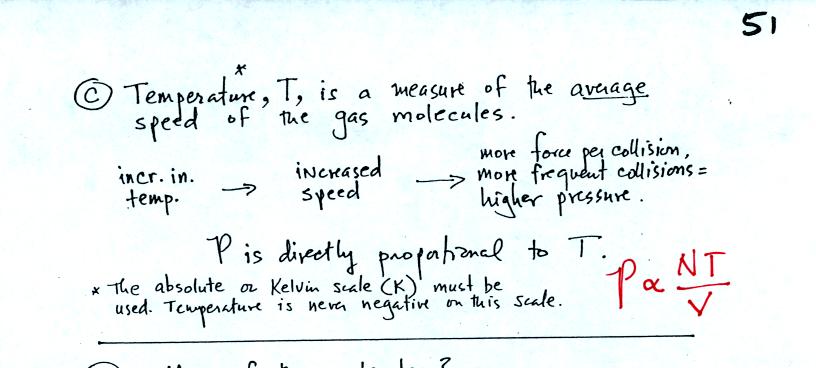 51
*
ⓒ Temperature, T, is a measure of the average
speed of the gas molecules.
incr. in. temp. → increased speed → more force per collision, more frequent collisions = higher pressure.
P is directly proportional to T.
* The absolute or Kelvin scale (K) must be
used. Temperature is never negative on this scale.
P ∝ NT/V